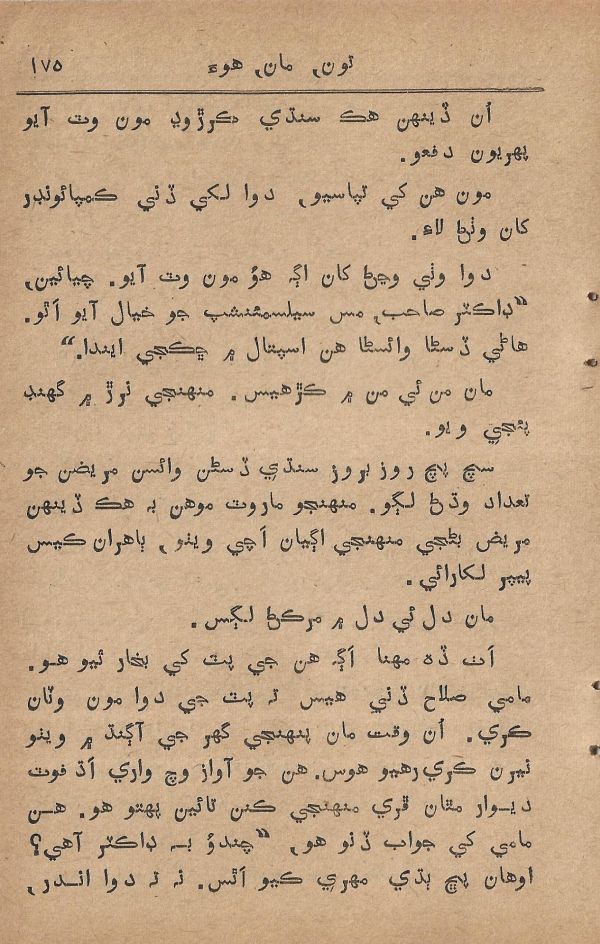 تون, مان, هوءَ ١٧٥
اُن ڏينهن هڪ سنڌي ڪرڙوڍ مون وٽ آيو
پهريون دفعو.
مون هن کي تپاسيو, دوا لکي ڏني ڪمپائونڊر
کان وٺڻ لاءِ.
دوا وٺي وڃڻ کان اڳه هوُ مون وٽ آيو. چيائين,
”ڊاڪٽر صاحب, مس سيلسمئنشپ جو خيال آيو اَٿو.
هاڻي ڏسڻا وائسڻا هن اسپتال ۾ ڇڪجي ايندا.“
مان من ئي من ۾ ڪڙهيس. منهنجي نرڙ ۾ گهنڊ
پئجي ويو.
سچ پچ روز بروز سنڌي ڏسڻن وائسن مريضن جو
تعداد وڌڻ لڳو. منهنجو ماروٽ موهن به هڪ ڏينهن
مريض بڻجي منهنجي اڳيان اَچي ويٺو, ٻاهران ڪيس
پيپر لکارائي.
مان دل ئي دل ۾ مرڪڻ لڳس.
اَٺ ڏه مهنا اَڳه هن جي پٽ کي بخار ٿيو هو.
مامي صلاح ڏني هيس ته پٽ جي دوا مون وٽان
ڪري. اُن وقت مان پنهنجي گهر جي آڳنڌ ۾ ويٺو
نيرن ڪري رهيو هوس. هن جو آواز وچ واري اَڌ فوٽ
ديوار مٿان ڦري منهنجي ڪنن تائين پهتو هو. هن
مامي کي جواب ڏنو هو, ”چندوُ به ڊاڪٽر آهي؟
اوهان پڇ ٻڌي مهري ڪيو اَٿس. نه ته دوا اندر,